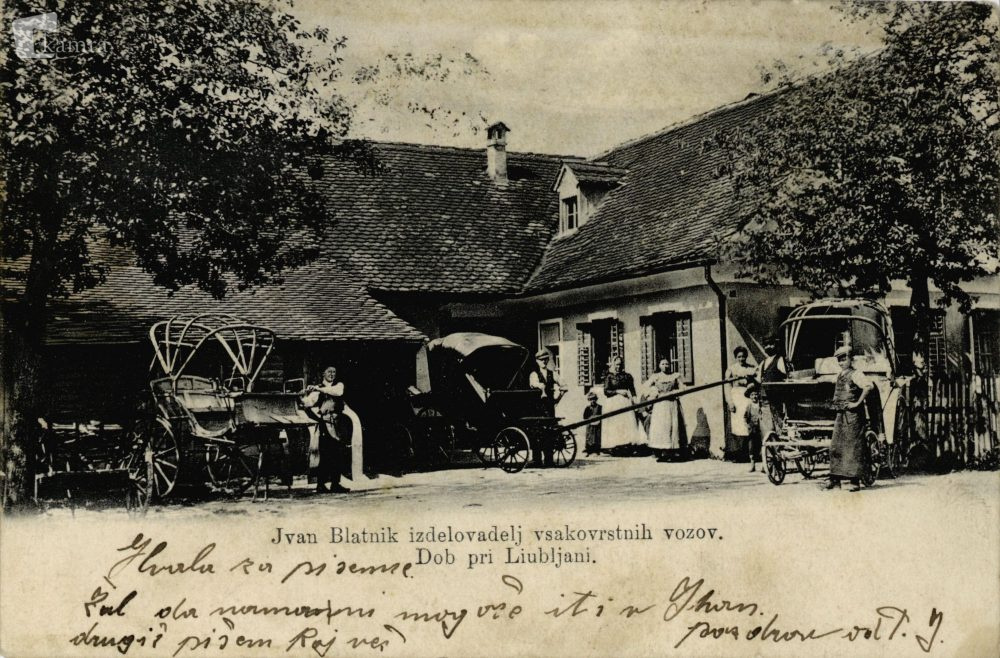 kamra
Jvan Blatnik izdelovadelj vsakovrstnih vozov.
Dob pri Liubljani.
Hvala za pisemce.
Žal da nam ni mogoče iti v Jhan.
drugič pišem kaj več
pozdrav od T. J.